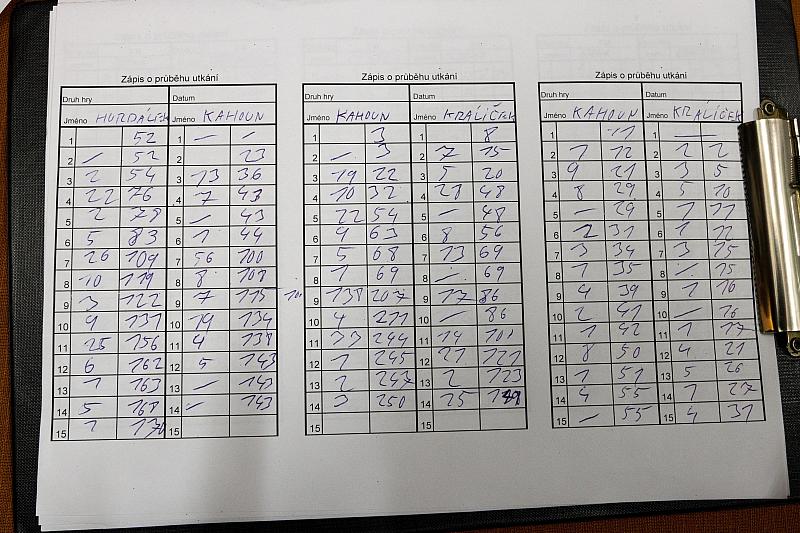 Zápis o průběhu utkání
Druh hry Datum
Jméno HURDÁLEK KAHOUN
1 52 — —
2 — 52 2 23
3 2 54 3 13 36
4 22 76 4 7 43
5 2 78 5 — 43
6 5 83 6 1 44
7 26 109 7 56 100
8 10 119 8 8 108
9 3 122 9 7 115
10 9 131 10 19 134
11 25 156 11 4 138
12 6 162 12 5 143
13 1 163 13 — 143
14 5 168 14 — 143
15 2 170 15
Zápis o průběhu utkání
Druh hry Datum
Jméno KAHOUN Jméno KRALÍČEK
1 3 1 8
2 — 3 2 7 15
3 19 22 3 5 20
4 10 32 4 28 48
5 22 54 5 — 48
6 9 63 6 8 56
7 5 68 7 13 69
8 1 69 8 — 69
9 138 207 9 17 86
10 4 211 10 — 86
11 33 244 11 14 101
12 1 245 12 21 121
13 2 247 13 2 123
14 3 250 14 25
15 15
Zápis o průběhu utkání
Druh hry Datum
Jméno KAHOUN Jméno KRALÍČEK
1 11 1 —
2 1 12 2 2 2
3 9 21 3 3 5
4 8 29 4 5 10
5 — 29 5 1 11
6 2 31 6 1 12
7 3 34 7 3 15
8 1 35 8 — 15
9 4 39 9 1 16
10 2 41 10 — 16
11 1 42 11 1 17
12 8 50 12 4 21
13 1 51 13 5 26
14 4 55 14 1 27
15 — 55 15 4 31